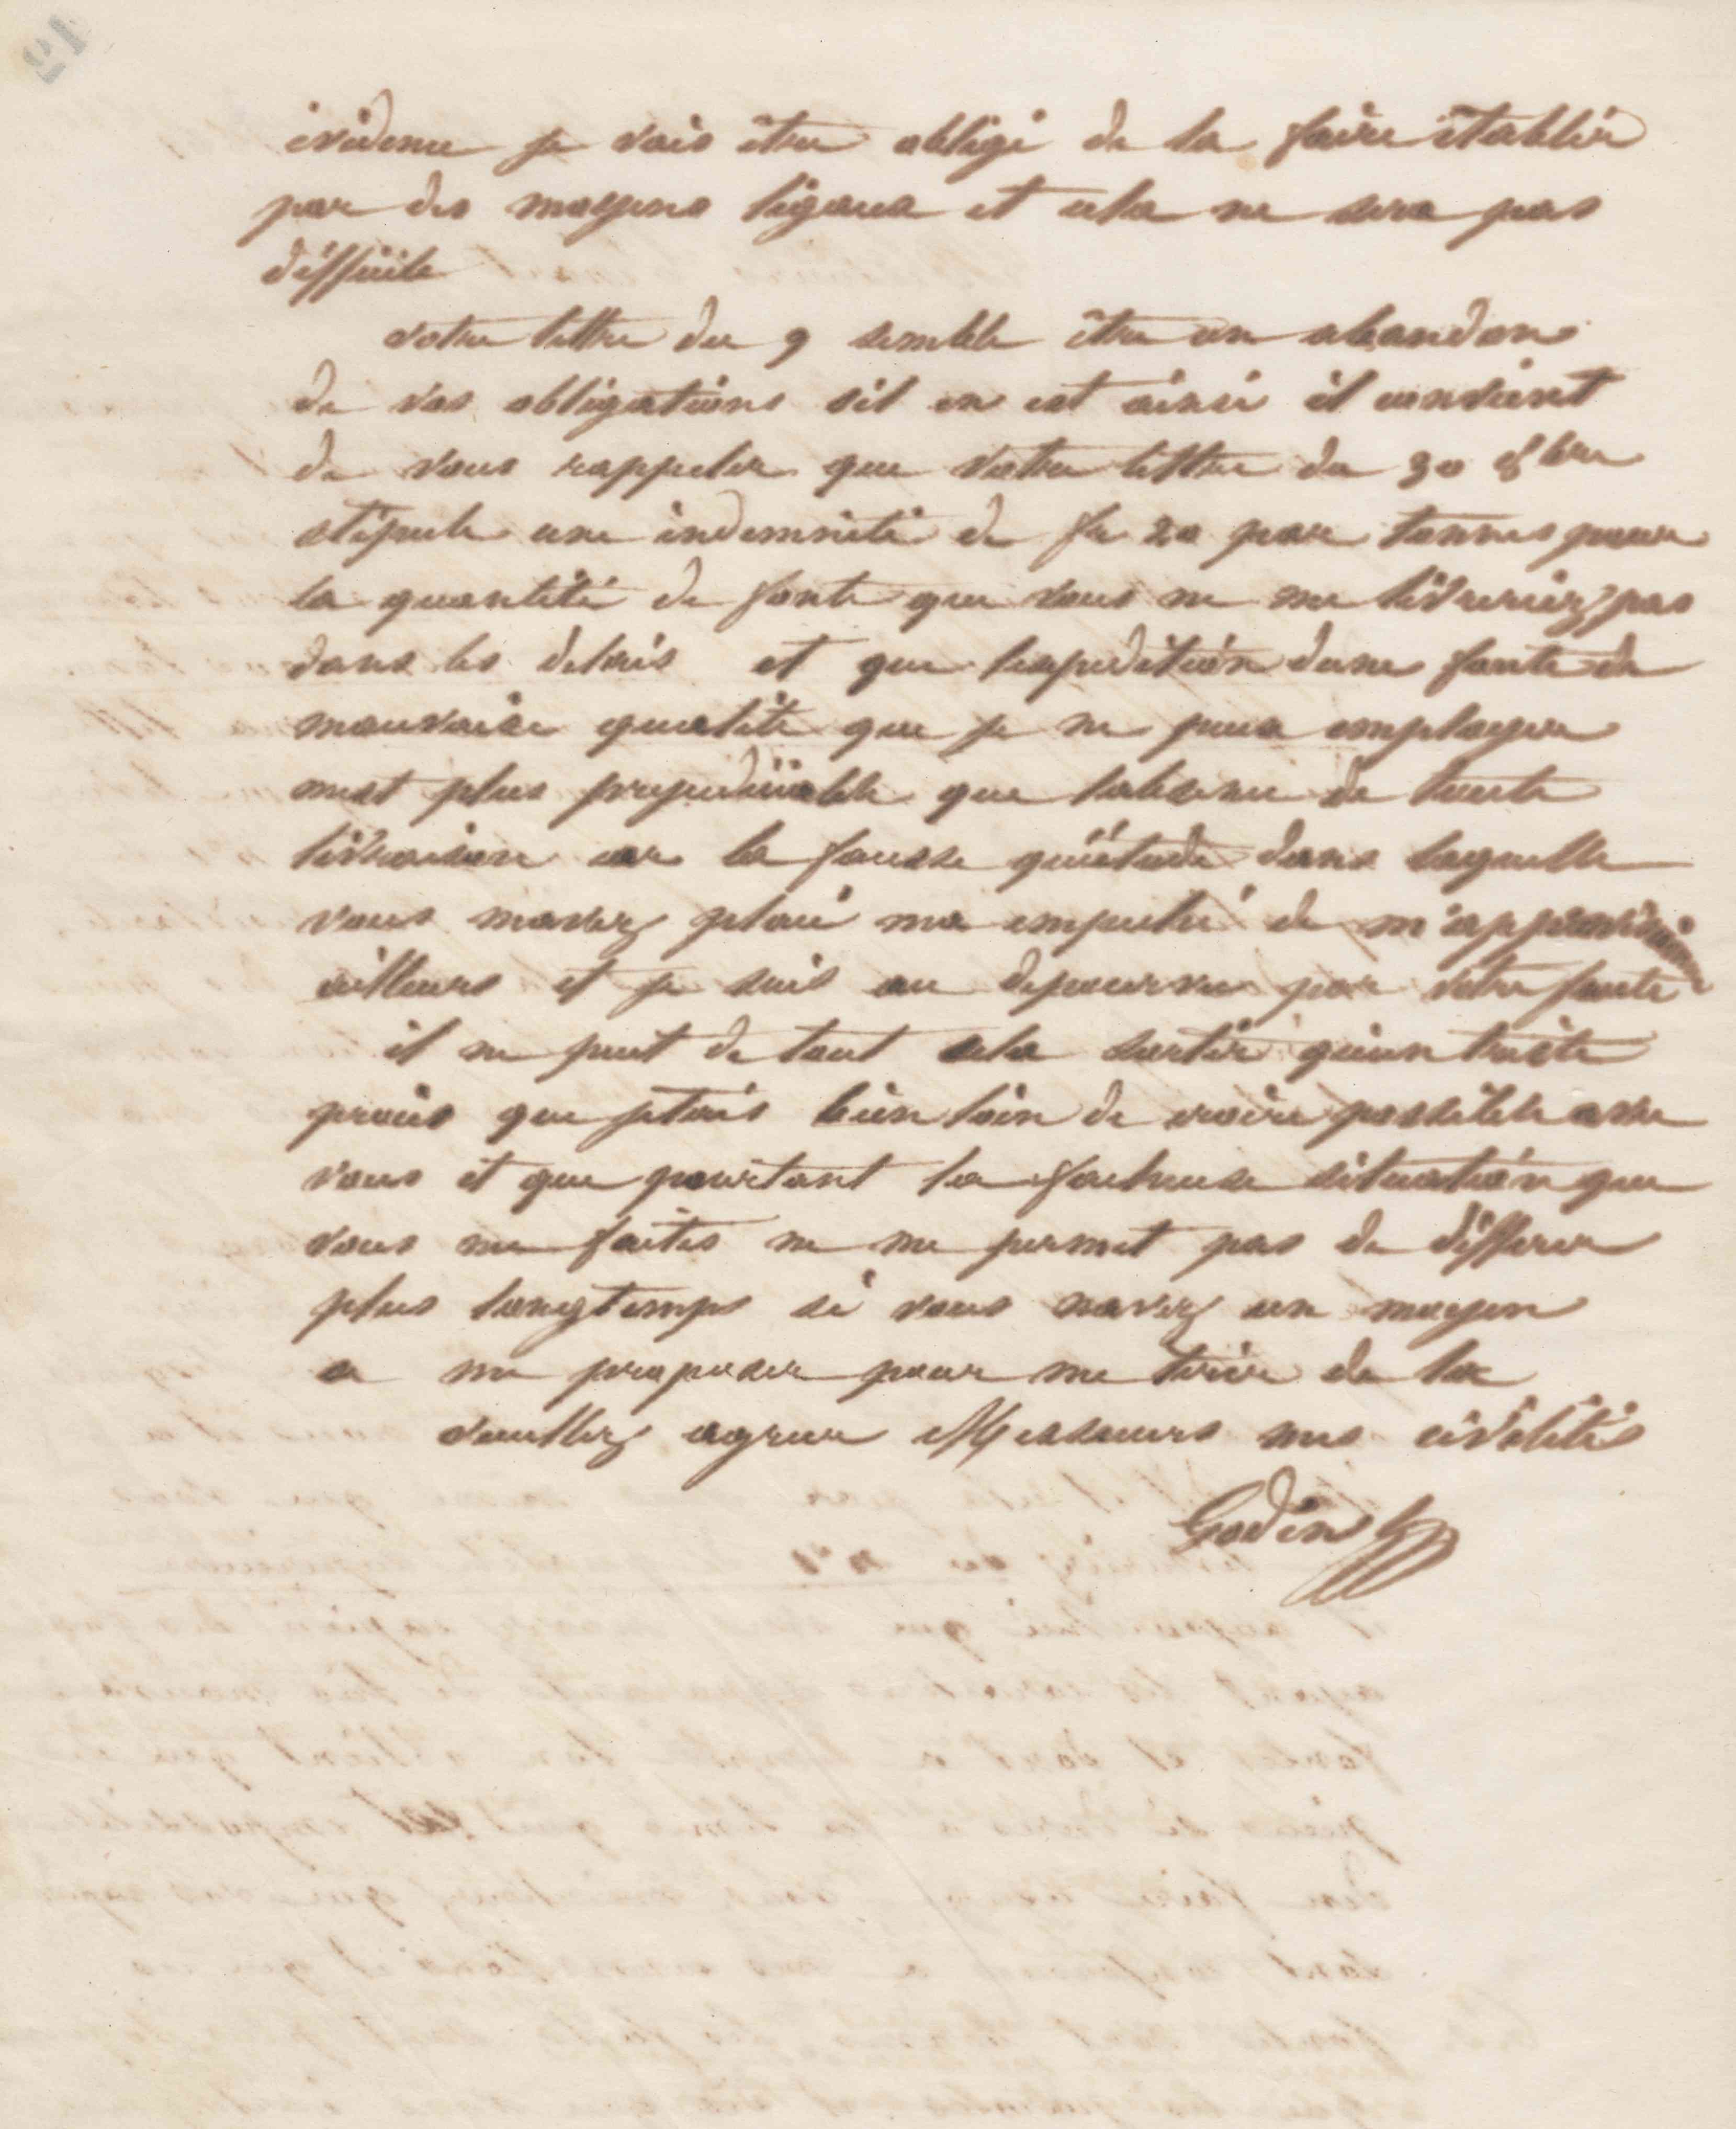 évidence je vais être obligé de la faire établir
par des moyens légaux et cela ne sera pas
difficile
votre lettre du 9 semble être un abandon
de vos obligations sil en est ainsi il convient
de vous rappeler que votre lettre du 30 8bre
stipule une indemnité de fr 20 par tonnes pour
la quantité de fonte que vous ne me livreriez pas
dans les délais et que lexpédition dune fonte de
mauvaise qualité que je ne peux employer
mest plus prejudiciable que labsence de toute
livraison car la fausse quiétude dans laquelle
vous mavez placé ma empeché de m'approvisionner
ailleurs et je suis au depourvu par votre faute
il ne peut de tout cela sortir quun triste
procès que jetais bien loin de croire possible avec
vous et que pourtant la facheuse situation que
vous me faites ne me permet pas de différer
plus longtemps si vous navez un moyen
a me proposer pour me tirer de la
veuillez agreer Messieurs mes civilités
Godin